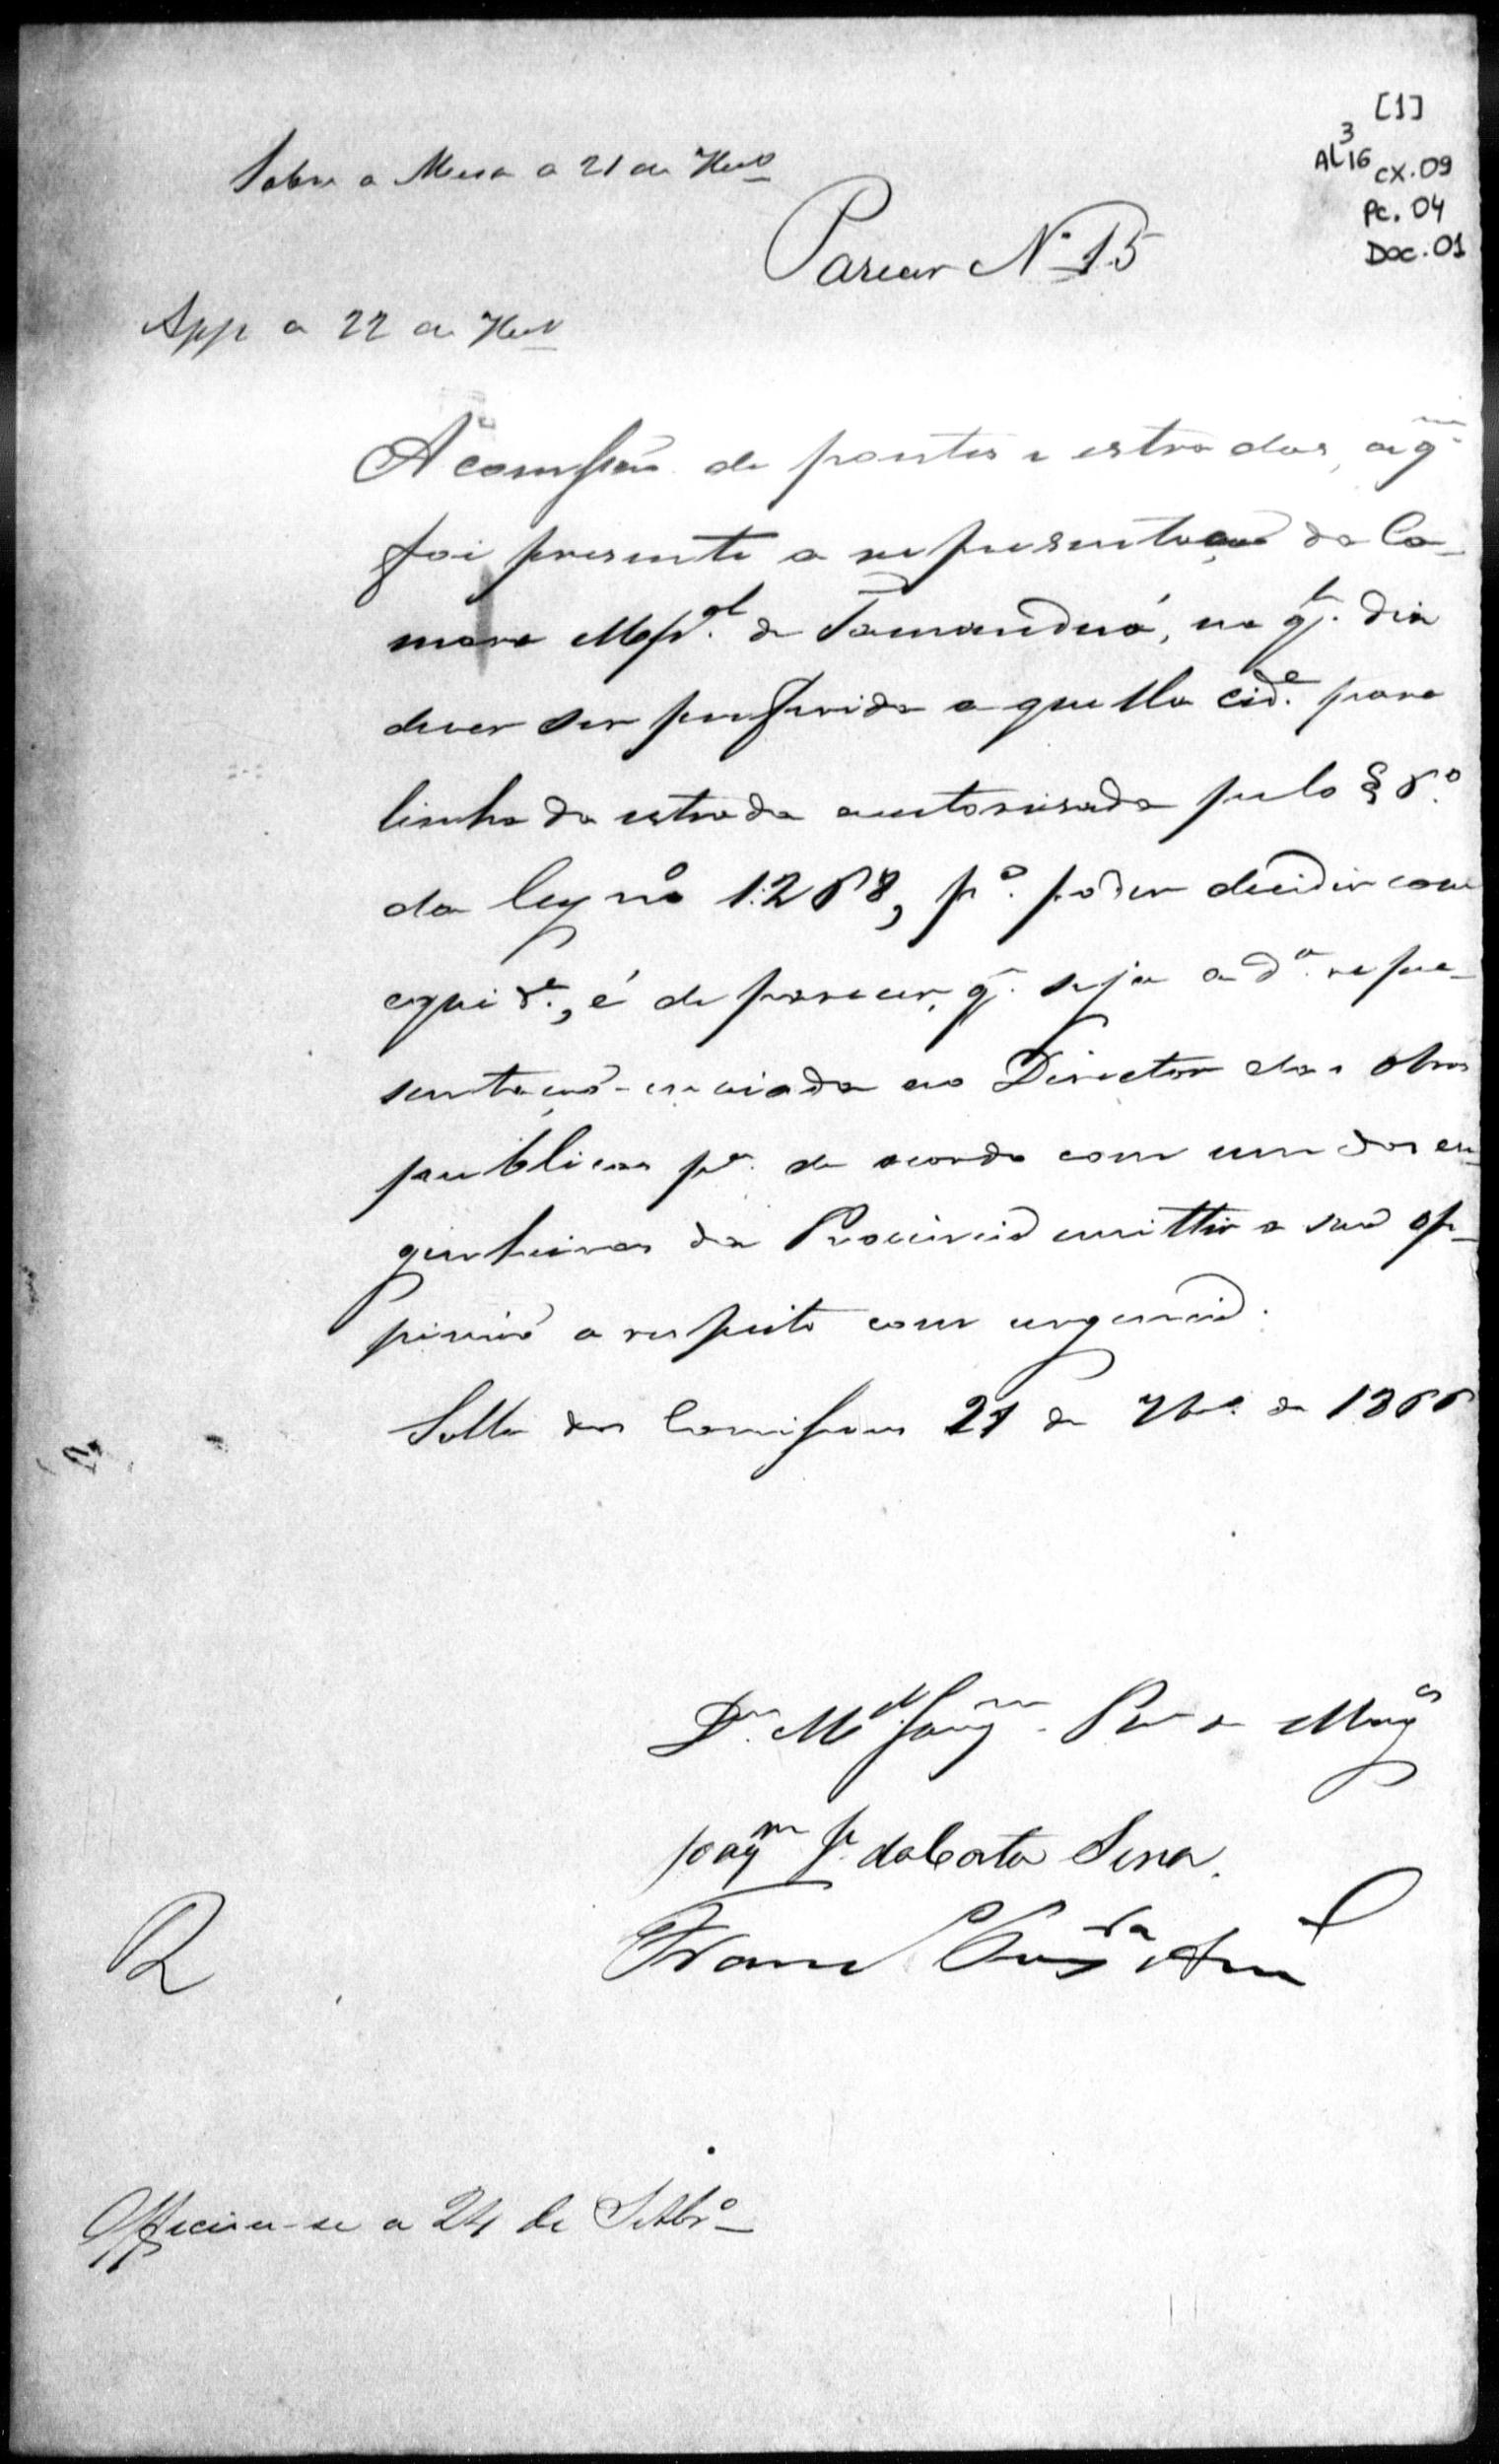 [1]
AL 3 16 cx. 09
Pc. 04
Doc. 01
Sobre a Mesa a 21 de 7bro
Parecer Nº 15
App a 22 de 7bro
A comissão de pontes e estradas, a qm
foi presente a representação da Ca-
mara Mpal. de Tamanduá, na ql. diz
dever ser preferida aquella cide. para
linha da estrada autorisada pelo § 6.º
da ley nº 1:268, pª. poder decidir com
equide., é de parecer, q. seja a dª. repre-
sentação enviada ao Director das obras
publicas pª. de acordo com um dos en-
genheiros da Provincia emittir a sua op-
pinião a respeito com urgencia.
Salla das Comissoens 21 de 7bro. de 1866
Dr. Mel. Joaqm. Pra de Mages
Joaqm J. da Costa Sena.
Franc
R
Officiou-se a 24 de Setbrº